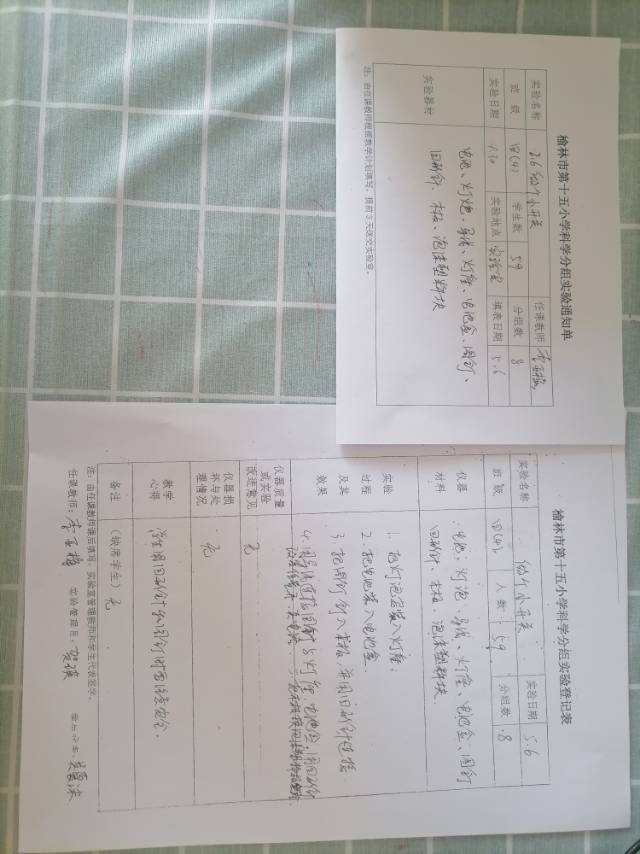 榆林市第十五小学科学分组实验通知单
实验名称 2.6 做个小开关 任课教师
班级 四(4) 学生数 59 分组数 8
实验日期 实验地点 实验室 填表日期 5.6
实验器材 电池、灯炮、导线、灯座、电池盒、图钉、
回形针、木板、泡沫塑料块
注:由任课教师根据教学计划填写,提前3天送交实验室。
榆林市第十五小学科学分组实验登记表
实验名称 做个小开关 实验日期 5.6
班级 四(4) 人数 59 分组数 8
仪器材料 电池、灯泡、导线、灯座、电池盒、图钉
回形针、木板、泡沫塑料块
实验过程及其效果 1. 把灯泡安装入灯座;
2. 把电池装入电池盒
3. 把图钉钉入木板,并用回形针连接
4. 用导线连接图钉与灯座、电池盒,
仪器质量或实验改进意见 无
仪器损坏与处理情况 无
教学心得 学生用回形针和图钉时要注意安全.
备注 (缺席学生) 无
注:由任课教师课后填写,实验室管理教师和学生代表签字。
任课教师: 实验管理员: 学生代表: